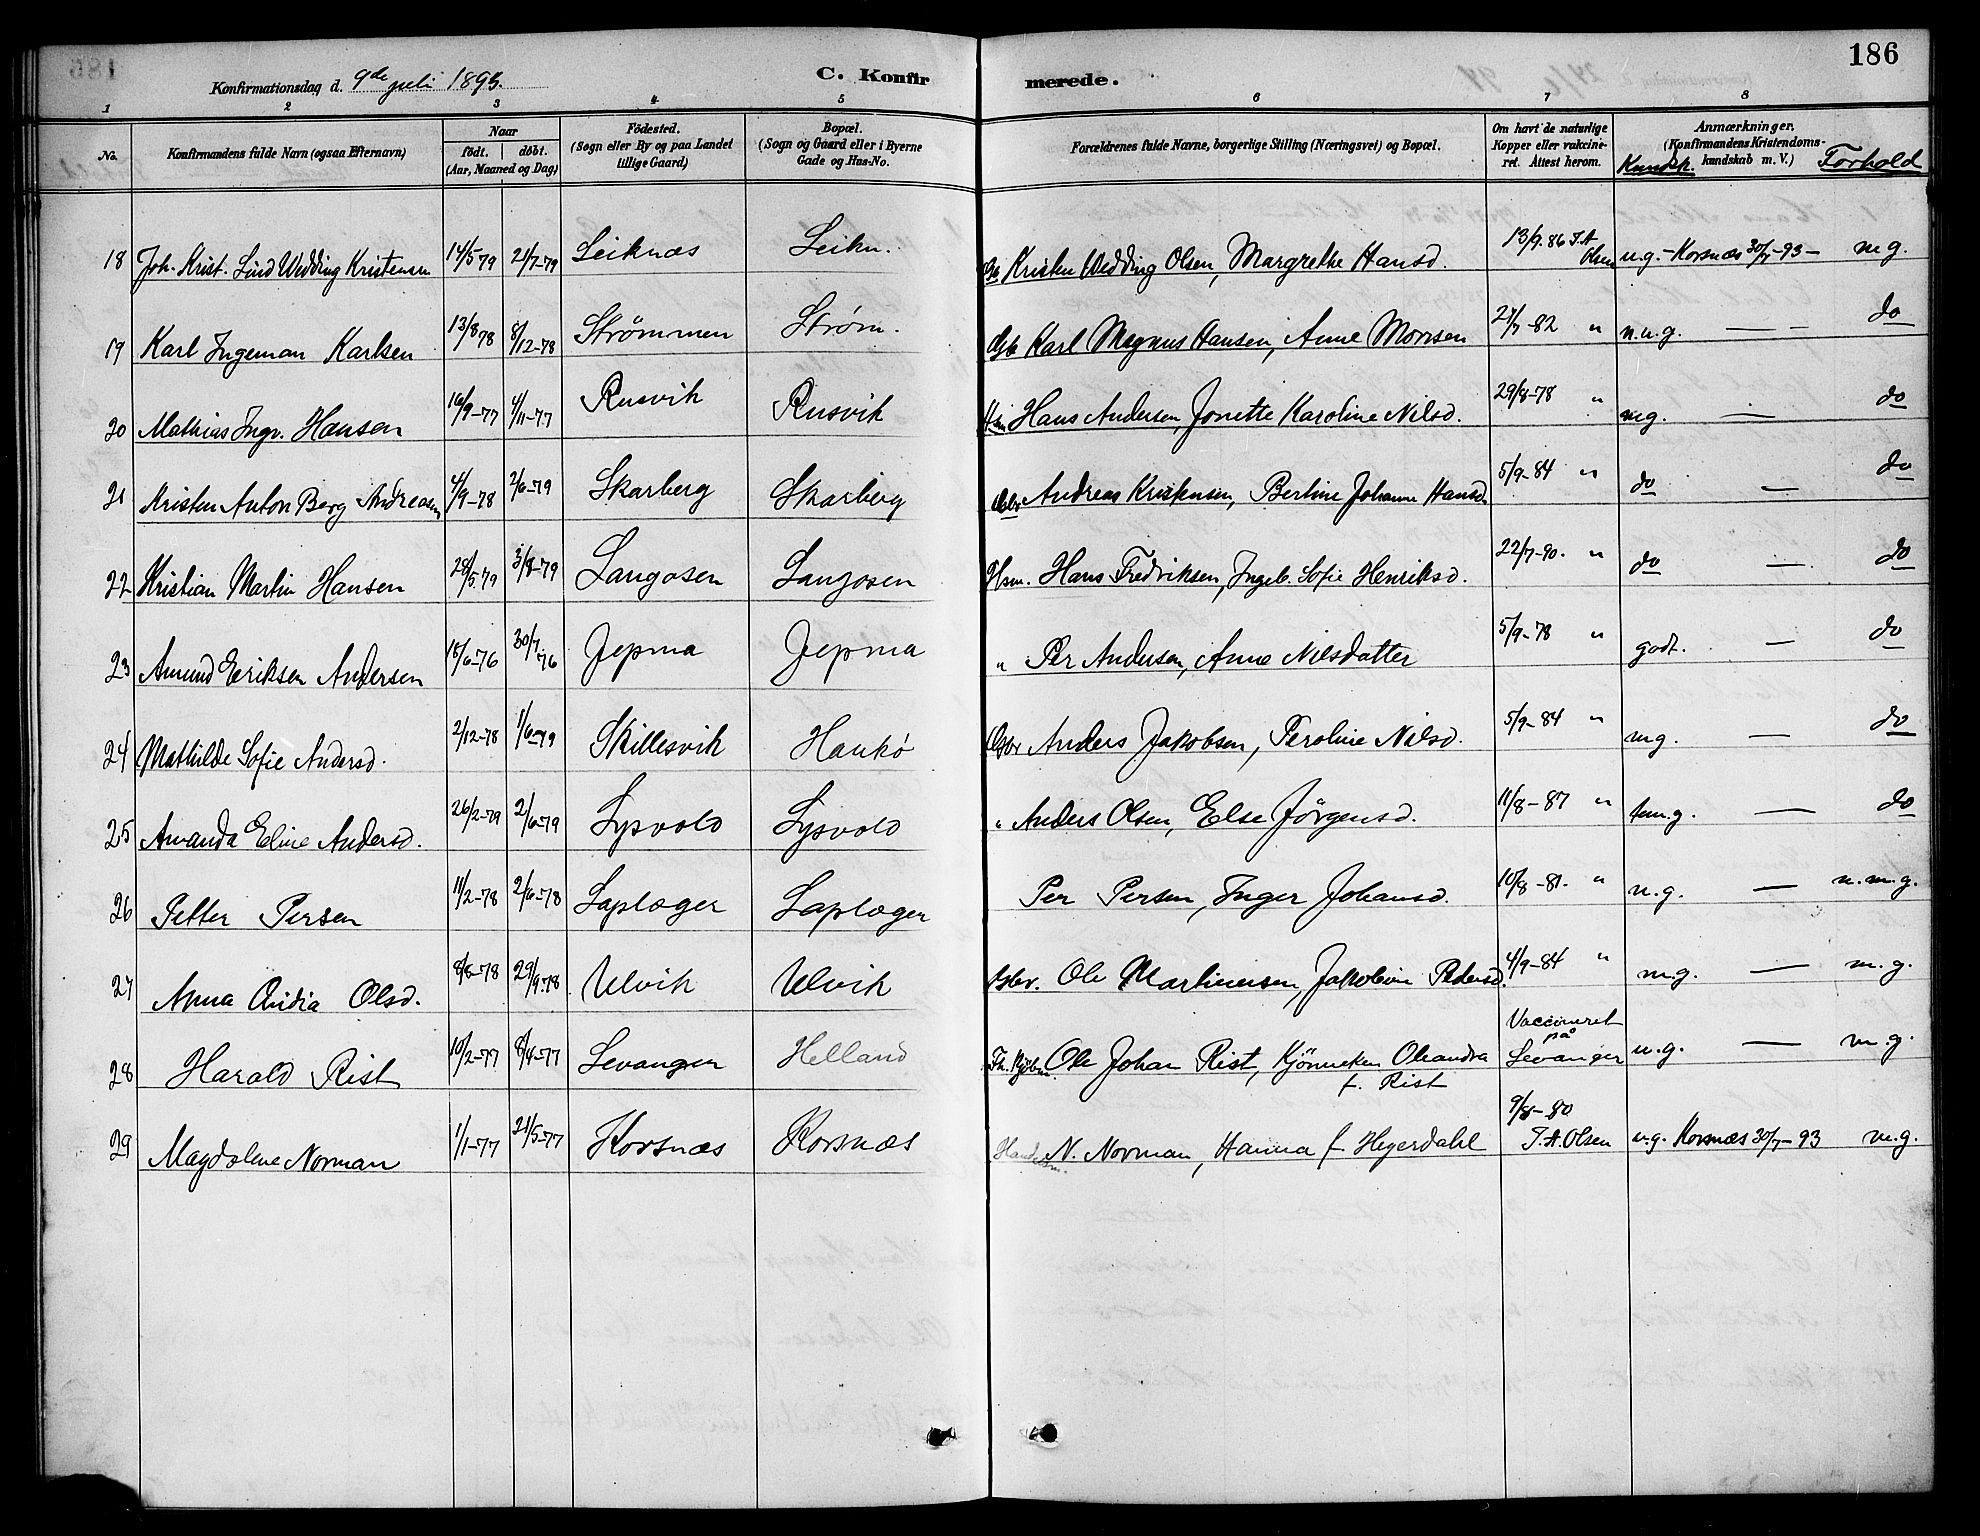 186
Konfirmationsdag d. 9de juli 1893. C. Konfirmerede.
1 2 3 4 5 6 7 8
No. Konfirmandens fulde Navn (ogsaa Efternavn) Naar födt. döbt. (Aar, Maaned og Dag) Födested. (Sogn eller By og paa Landet tillige Gaard) Bopæl. (Sogn og Gaard eller i Byerne Gade og Hus-No. Forældrenes fulde Navne, borgerlige Stilling (Næringsvei) og Bopæl. Om havt de naturlige Kopper eller vakcineret. Attest herom. Anmærkninger. (Konfirmandens Kristendomskundskab m. V.) Kundsk. Forhold
18 Joh. Krist. Lind Wedding Kristensen 14/5 79 21/7-79 Leiknæs Leikn. Kristen Wedding Olsen, Margrethe Hansd. 13/9. 86 T.A Olsen u.g. - Korsnæs 30/7-93 - m.g.
19 Karl Ingeman Karlsen 13/8 78 8/12-78 Strømmen Strøm. Karl Magnus Hansen, Anne Monsen 21/7-82 " n.u.g. — do
20 Mathias Ingv. Hansen 16/9-77 4/11-77 Rusvik Rusvik Hsm Hans Andersen, Jonette Karoline Nilsd. 29/8-78 " mg. — do
21 Kristen Anton Berg Andreasen 4/9-78 2/6-79 Skarberg Skarberg Andreas Kristensen, Berline Johanne Hansd. 5/9-84 " do — do
22 Kristian Martin Hansen 28/5 79 3/8-79 Langosen Langosen Hsm. Hans Fredriksen, Ingeb. Sofie Henriksd. 22/7-90. " do — do
23 Amund Eriksen Andersen 18/6-76 30/7 76 Jepma Jepma " Per Andersen, Anne Nilsdatter 5/9-78 " godt. — do
24 Mathilde Sofie Andersd. 2/12-78 1/6-79 Skillesvik Hankø Anders Jakobsen, Peroline Nilsd. 5/9-84 " mg. — do
25 Amanda Eline Andersd. 26/2-79 2/6-79 Lysvold Lysvold " Anders Olsen, Else Jörgensd. 11/8-87 " tem.g. — do
26 Petter Persen 11/2-78 2/6-78 Laplæger Laplæger Per Persen, Inger Johansd. 10/8-81. " u.g. — n.m.g.
27 Anna Olsd. 8/8-78 29/9.78 Ulvik Ulvik Ole Martinensen, Pedersd. 4/9-84 " m.g. — m.g.
28 Harald Rist 10/2-77 8/4-77 Levanger Helland Ole Johan Rist, Kjönneken Oleandra f. Rist Vaccineret på Levanger u.g. — m.g.
29 Magdalene Norman 1/1-77 21/5-77 Korsnæs Korsnæs Handelsm. N. Norman, Hanna f. Heyerdahl 9/8-80 T.A. Olsen u.g. Korsnæs 30/7-93 m.g.